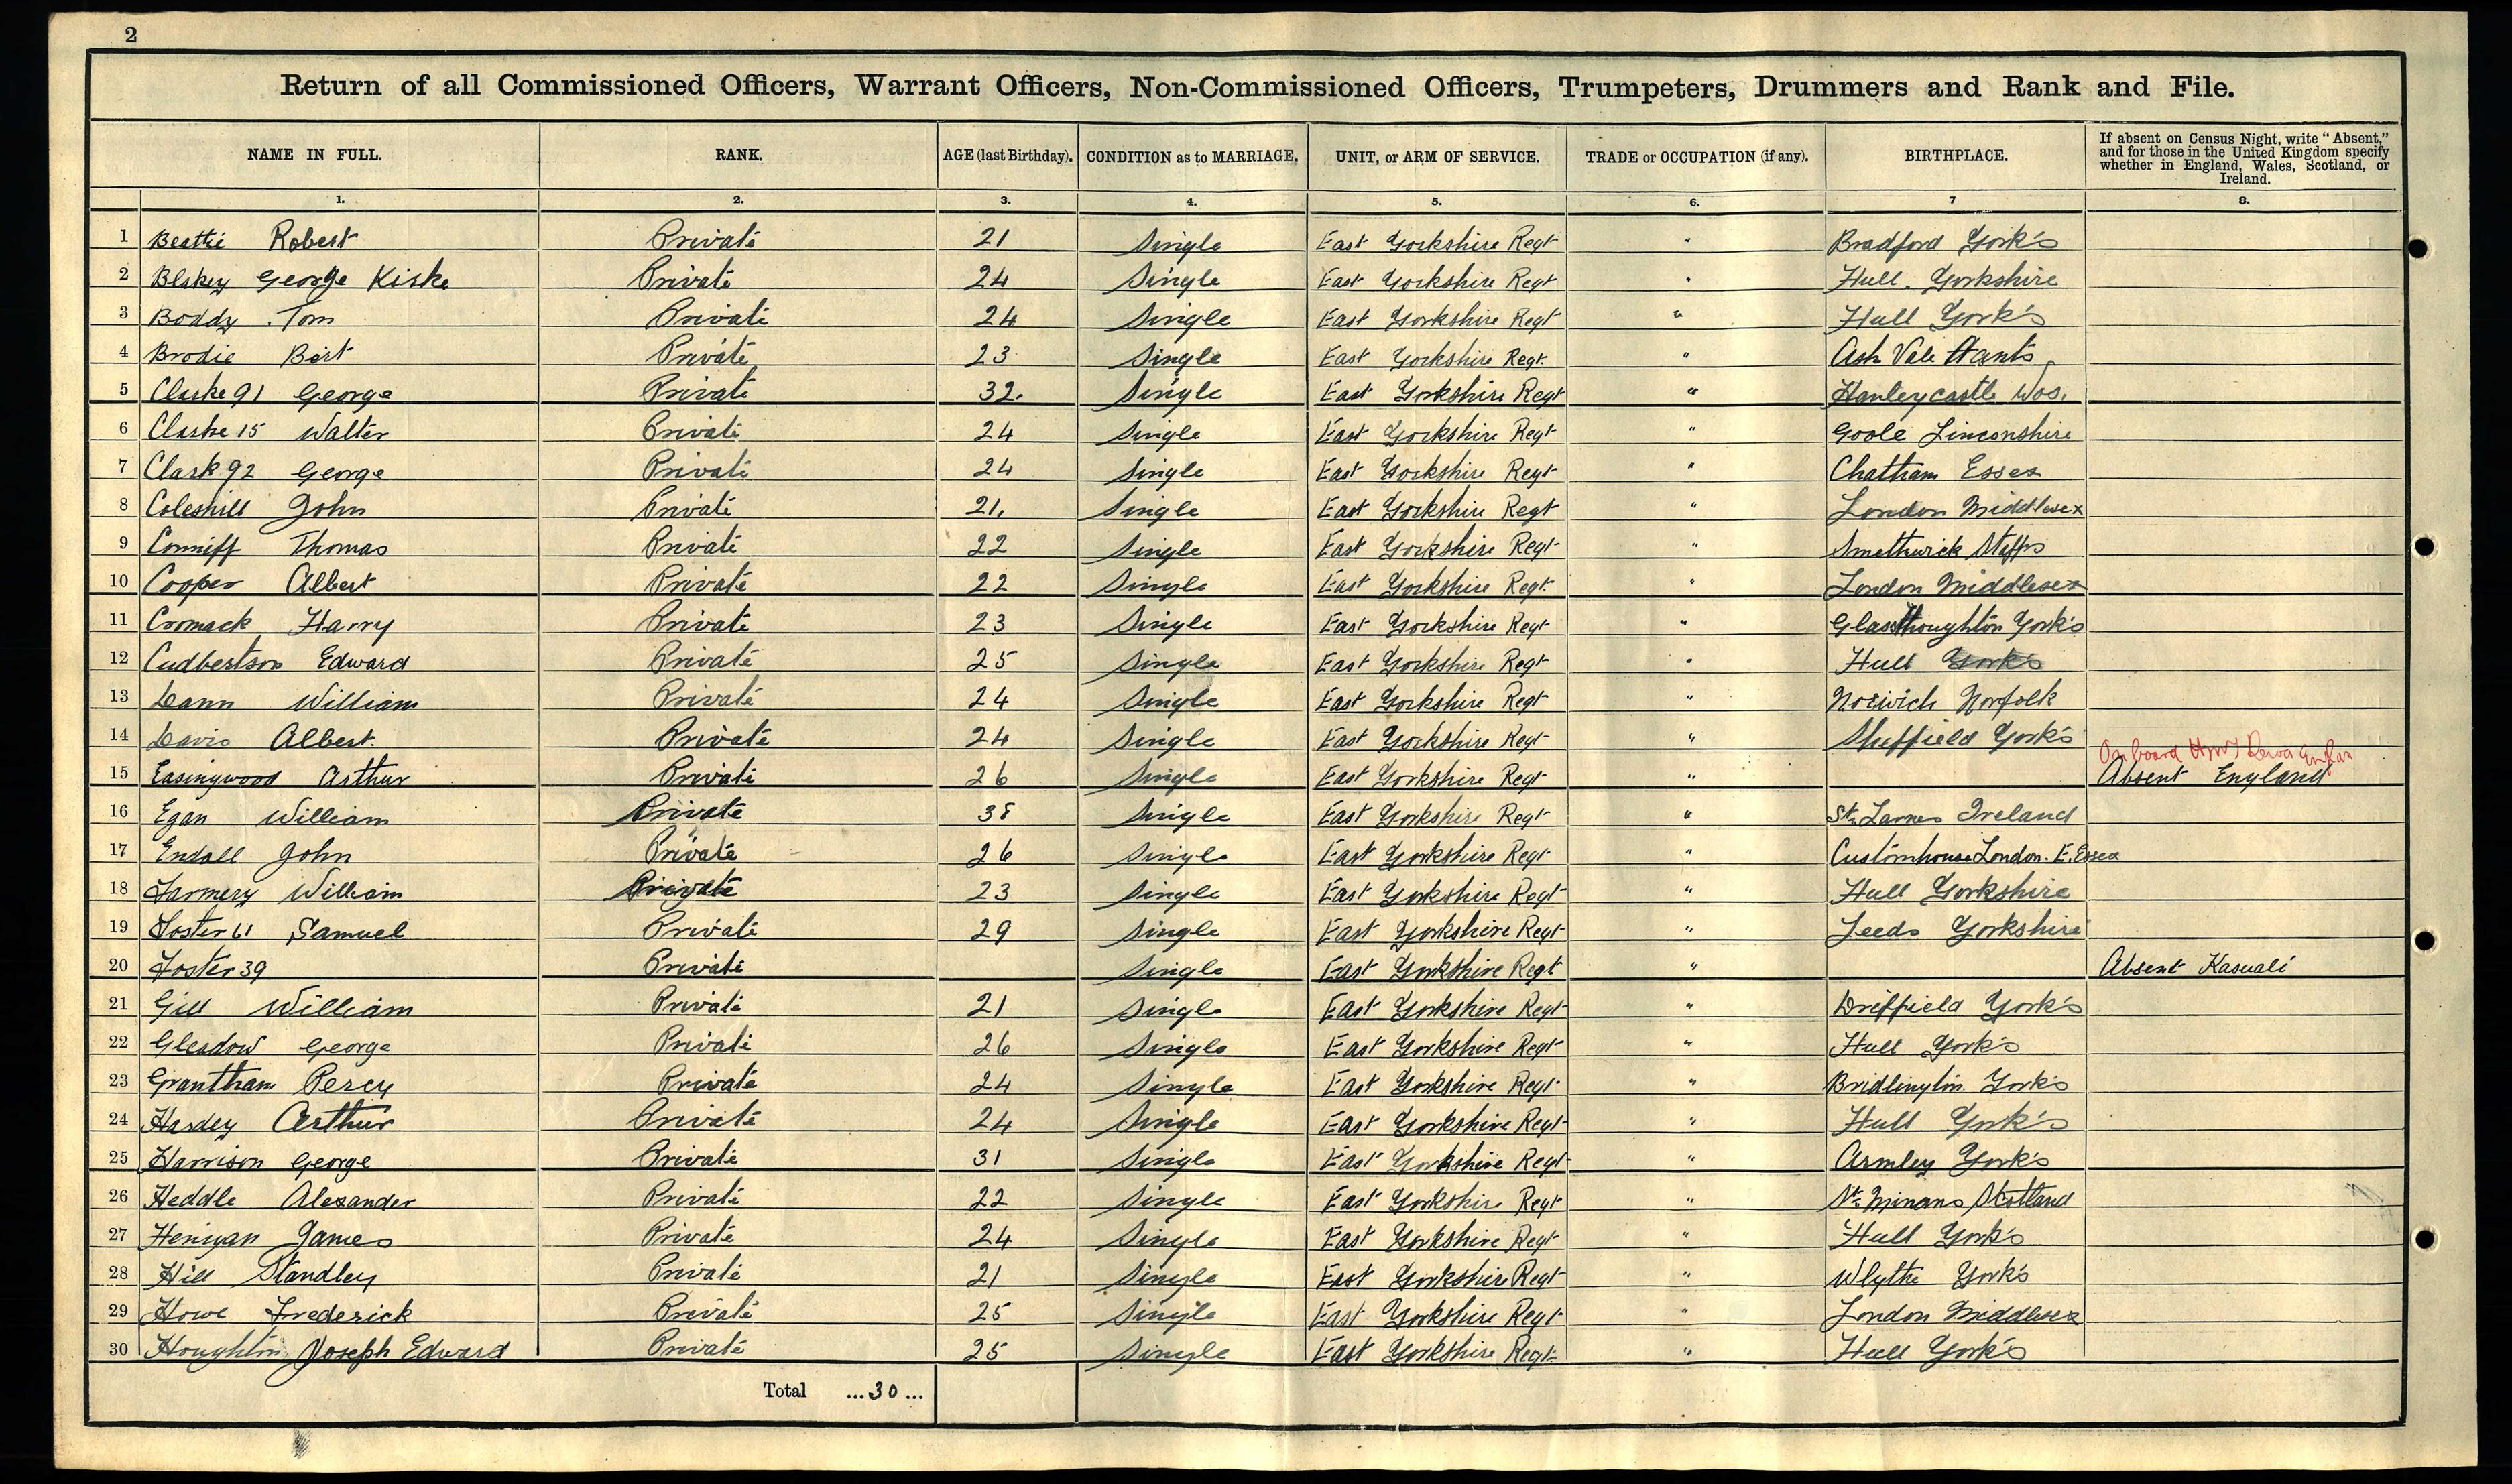 2
Return of all Commissioned Officers, Warrant Officers, Non-Commissioned Officers, Trumpeters, Drummers and Rank and File.
NAME IN FULL. RANK. AGE (last Birthday). CONDITION as to MARRIAGE. UNIT, or ARM OF SERVICE. TRADE or OCCUPATION (if any). BIRTHPLACE. If absent on Census Night, write "Absent," and for those in the United Kingdom specify whether in England, Wales, Scotland, or Ireland.
1. 2. 3. 4. 5. 6. 7 8.
1 Beattie Robert Private 21 Single East Yorkshire Regt " Bradford York's
2 Blakey George Kiske Private 24 Single East Yorkshire Regt " Hull. Yorkshire
3 Boddy Tom Private 24 Single East Yorkshire Regt " Hull York's
4 Brodie Bert Private 23 Single East Yorkshire Regt. " Ash Vale Hants
5 Clarke 91 George Private 32. Single East Yorkshire Regt " Hanleycastle Wos.
6 Clarke 15 Walter Private 24 Single East Yorkshire Regt " Goole Linconshire
7 Clark 92 George Private 24 Single East Yorkshire Regt " Chatham Essex
8 Coleshill John Private 21. Single East Yorkshire Regt " London Middlesex
9 Conniff Thomas Private 22 Single East Yorkshire Regt " Smethwick Staffs
10 Cooper Albert Private 22 Single East Yorkshire Regt. " London Middlesex
11 Cromack Harry Private 23 Single East Yorkshire Regt " Glasshoughton York's
12 Cudbertson Edward Private 25 Single East Yorkshire Regt " Hull York's
13 Dann William Private 24 Single East Yorkshire Regt " Norwich Norfolk
14 Davis Albert. Private 24 Single East Yorkshire Regt " Sheffield York's
On board
15 Easingwood Arthur Private 26 Single East Yorkshire Regt " Absent England
16 Egan William Private 38 Single East Yorkshire Regt " St. Ireland
17 Endall John Private 26 Single East Yorkshire Regt " Customhouse London. E. Essex
18 Farmery William Private 23 Single East Yorkshire Regt " Hull Yorkshire
19 Foster 61 Samuel Private 29 Single East Yorkshire Regt " Leeds Yorkshire
20 Foster 39 Private Single East Yorkshire Regt " Absent Kasuali
21 Gill William Private 21 Single East Yorkshire Regt " Driffield York's
22 Gleadow George Private 26 Single East Yorkshire Regt " Hull York's
23 Grantham Percy Private 24 Single East Yorkshire Regt " Bridlington York's
24 Hardey Arthur Private 24 Single East Yorkshire Regt " Hull York's
25 Harrison George Private 31 Single East Yorkshire Regt " Armley York's
26 Heddle Alexander Private 22 Single East Yorkshire Regt " St. Ninans Scotland
27 Henigan James Private 24 Single East Yorkshire Regt " Hull York's
28 Hill Standley Private 21 Single East Yorkshire Regt " Wlythe York's
29 Howe Frederick Private 25 Single East Yorkshire Regt " London Middlesex
30 Houghton Joseph Edward Private 25 Single East Yorkshire Regt. " Hull York's
Total ...30...